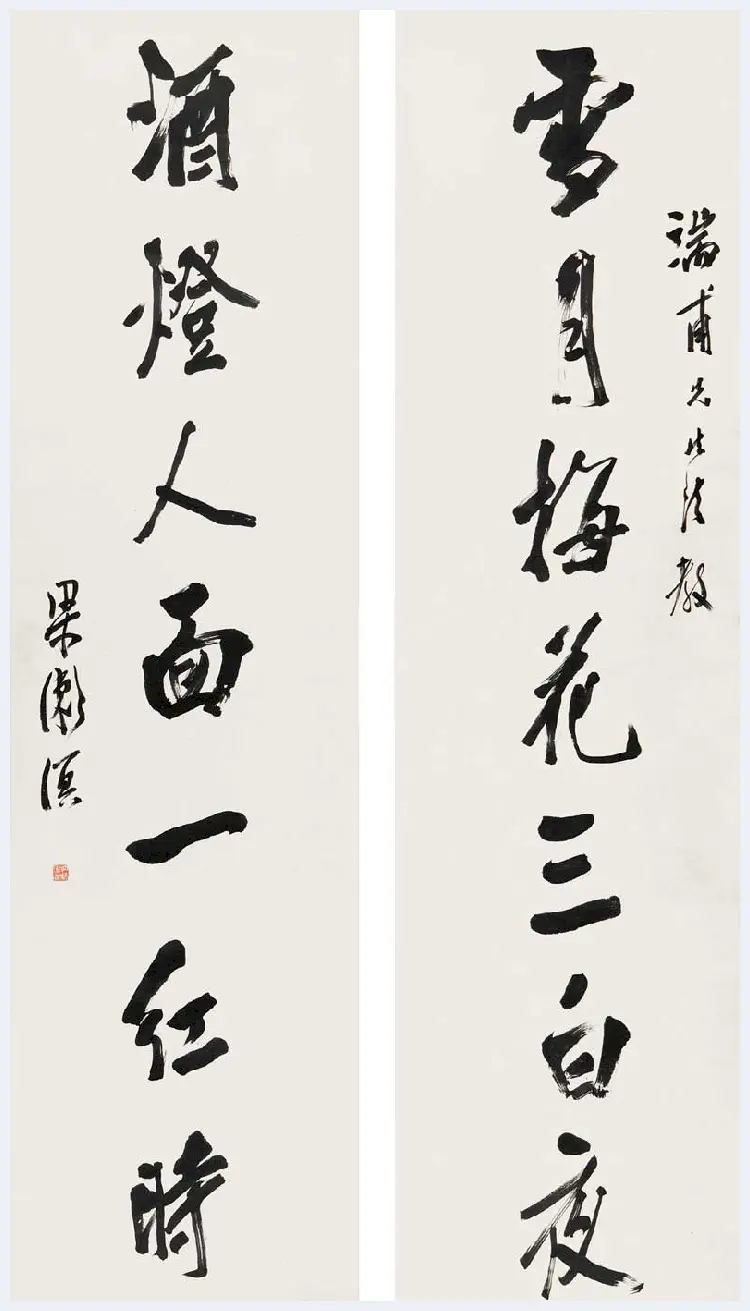 瑞甫先生法教
雪月梅花三白夜
酒燈人面一红時
梁漱溟